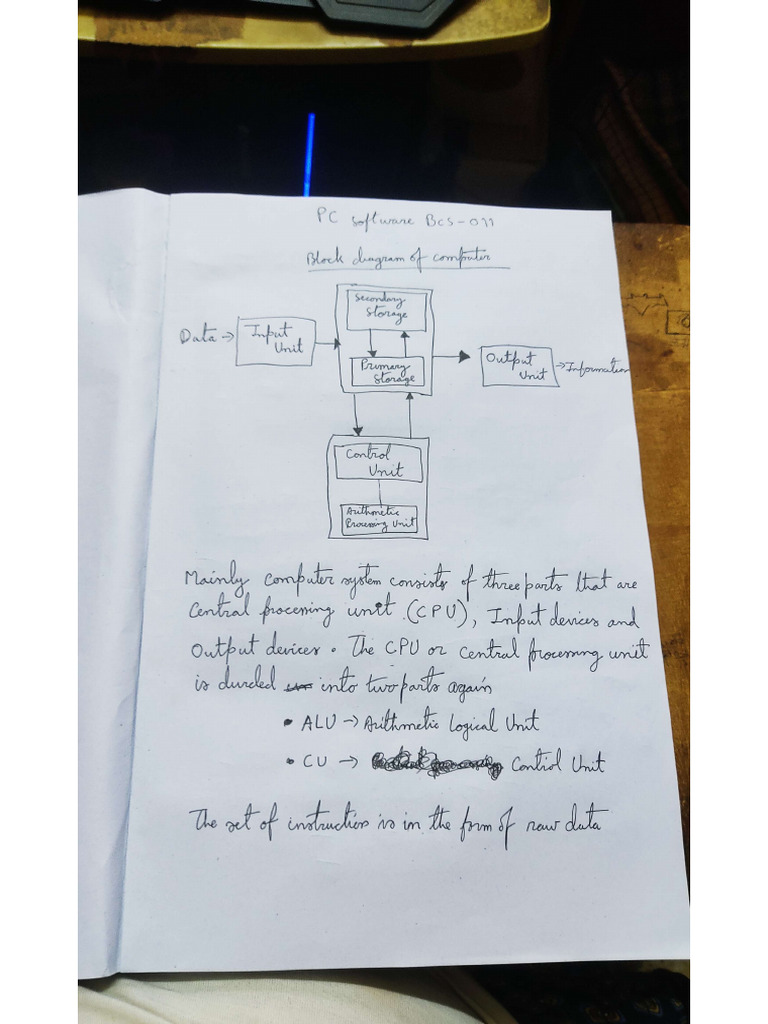 PC software BCS-011
Block diagram of computer
Secondary
Storage
Data → Input
Unit
Primary
Storage
Output
Unit
→ Information
Control
Unit
Arithmetic
Processing Unit
Mainly computer system consists of three parts that are
central processing unit (CPU), Input devices and
Output devices. The CPU or central processing unit
is divided into two parts again
• ALU → Arithmetic Logical Unit
• CU → Control Unit
The set of instruction is in the form of raw data